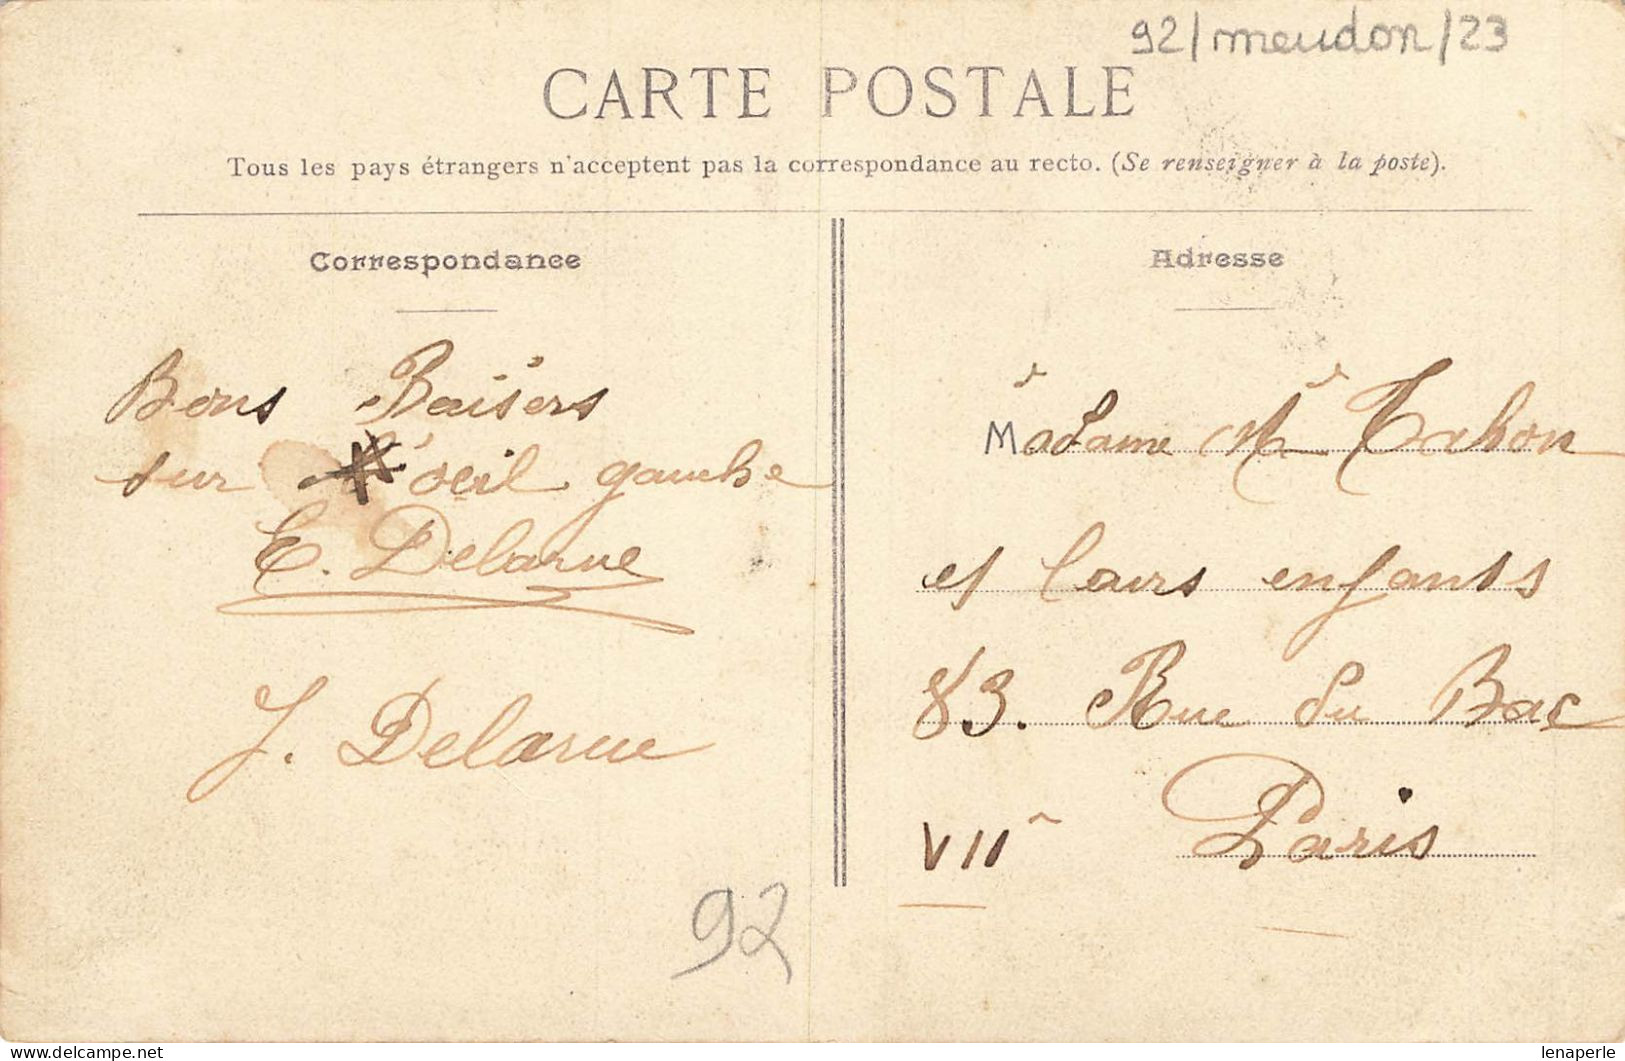 92/meudon/23
CARTE POSTALE
Tous les pays étrangers n'acceptent pas la correspondance au recto. (Se renseigner à la poste).
Correspondance
Adresse
Bons Baisers
sur l'oeil gauche
E. Delarue
J. Delarue
Madame Mr Tahon
et leurs enfants
83. Rue du Bac
VII Paris
92
www.delcampe.net
lenaperle